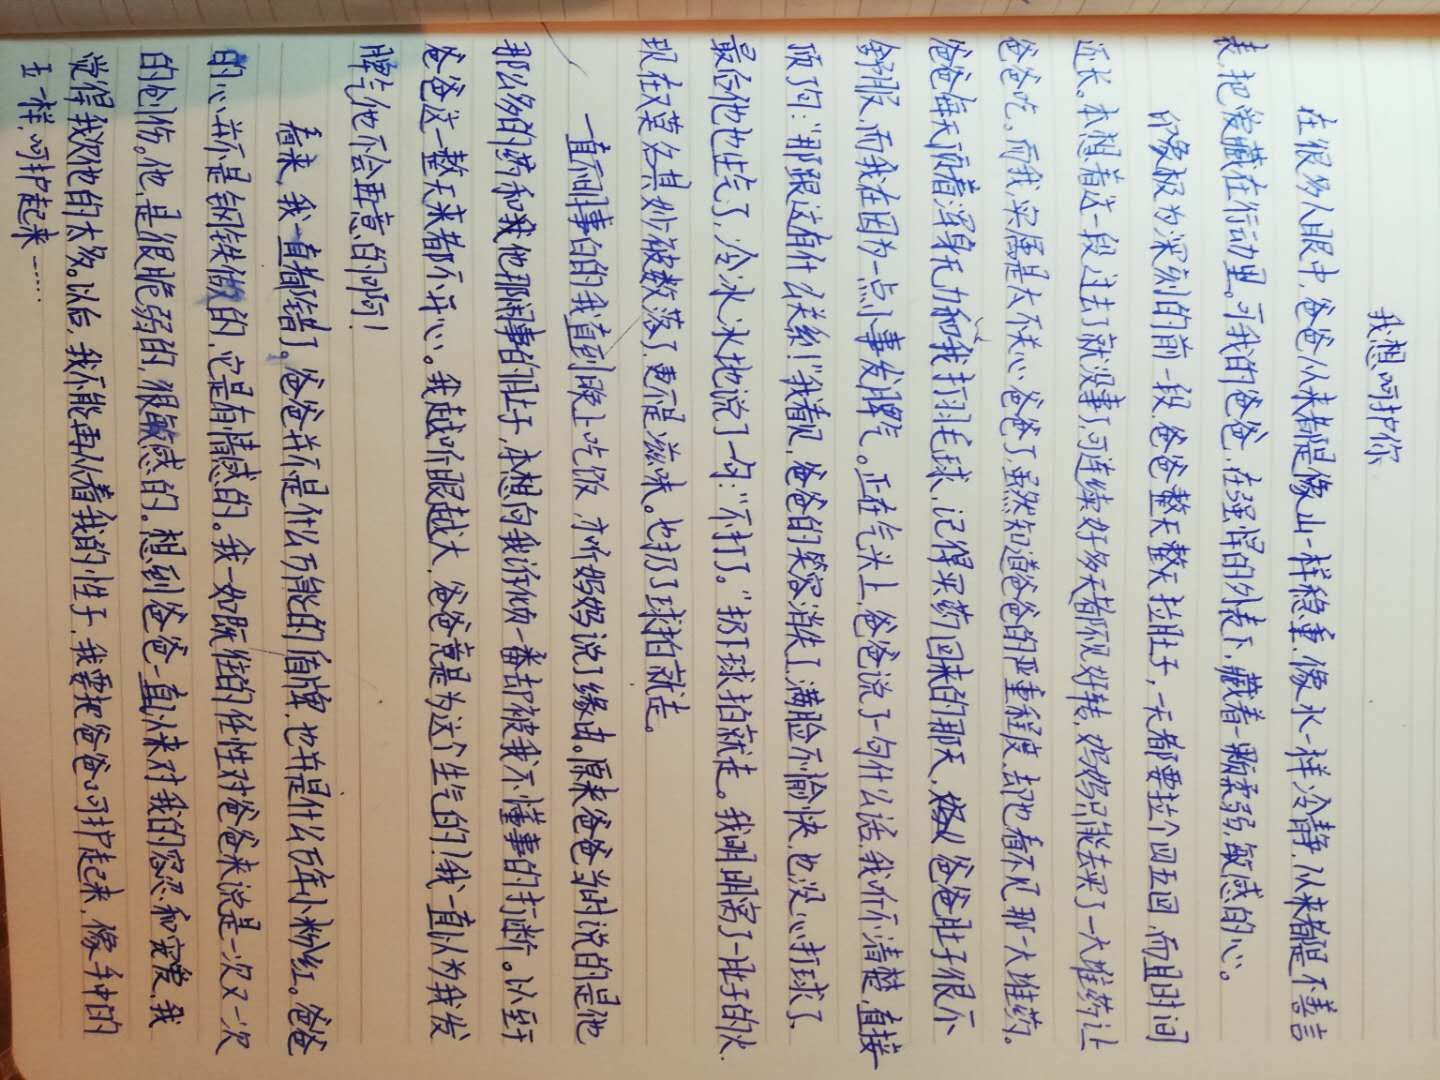 我想呵护你
在很多人眼中,爸爸从来都是像山一样稳重,像水一样冷静,从来都是不善言
表,把爱藏在行动里。可我的爸爸,在强悍的外表下,藏着一颗柔弱,敏感的心。
印象极为深刻的前一段,爸爸整天整天拉肚子,一天都要拉个四五回,而且时间
还长。本想着这一段过去了就没事了,可连续好多天都不见好转,妈妈只能去买了一大堆药让
爸爸吃。而我实属是太不关心爸爸了虽然知道爸爸的严重程度,却也看不见那一大堆药。
爸爸每天顶着浑身无力和我打羽毛球,记得买药回来的那天,爸爸肚子很不
舒服,而我在因为一点小事发脾气。正在气头上,爸爸说了一句什么话,我听不清楚,直接
顶了句:“那跟这有什么关系!”我看见,爸爸的笑容消失了,满脸不愉快,也没心打球了,
最后他也生气了,冷冰冰地说了一句:“不打了。”扔下球拍就走。我明明窝了一肚子的火,
现在又莫名其妙被数落了,更不是滋味。也扔了球拍就走。
一直闷事白的我直到晚上吃饭,才听妈妈说了缘由。原来爸爸当时说的是他
那么多的药和我他那闹事的肚子,本想向我诉倾一番却被我不懂事的打断。以至于
爸爸这一整天来都不开心。我越听眼越大,爸爸竟是为这个生气的!我一直认为我发
脾气他不会再意的啊!
看来,我一直都错了。爸爸并不是什么万能的值牌,也并是什么百年小粉红。爸爸
的心并不是钢铁做的,它是有情感的。我一如既往的任性对爸爸来说是一次又一次
的创伤。他,是很脆弱的,很敏感的。想到爸爸一直以来对我的容忍和宠爱,我
觉得我欠他的太多。以后,我不能再依着我的性子,我要把爸爸呵护起来,像手中的
玉一样,呵护起来……